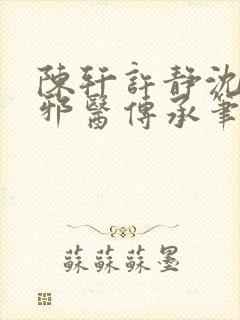 陳軒許靜沈
邪醫傳承筆
蘇蘇蘇墨